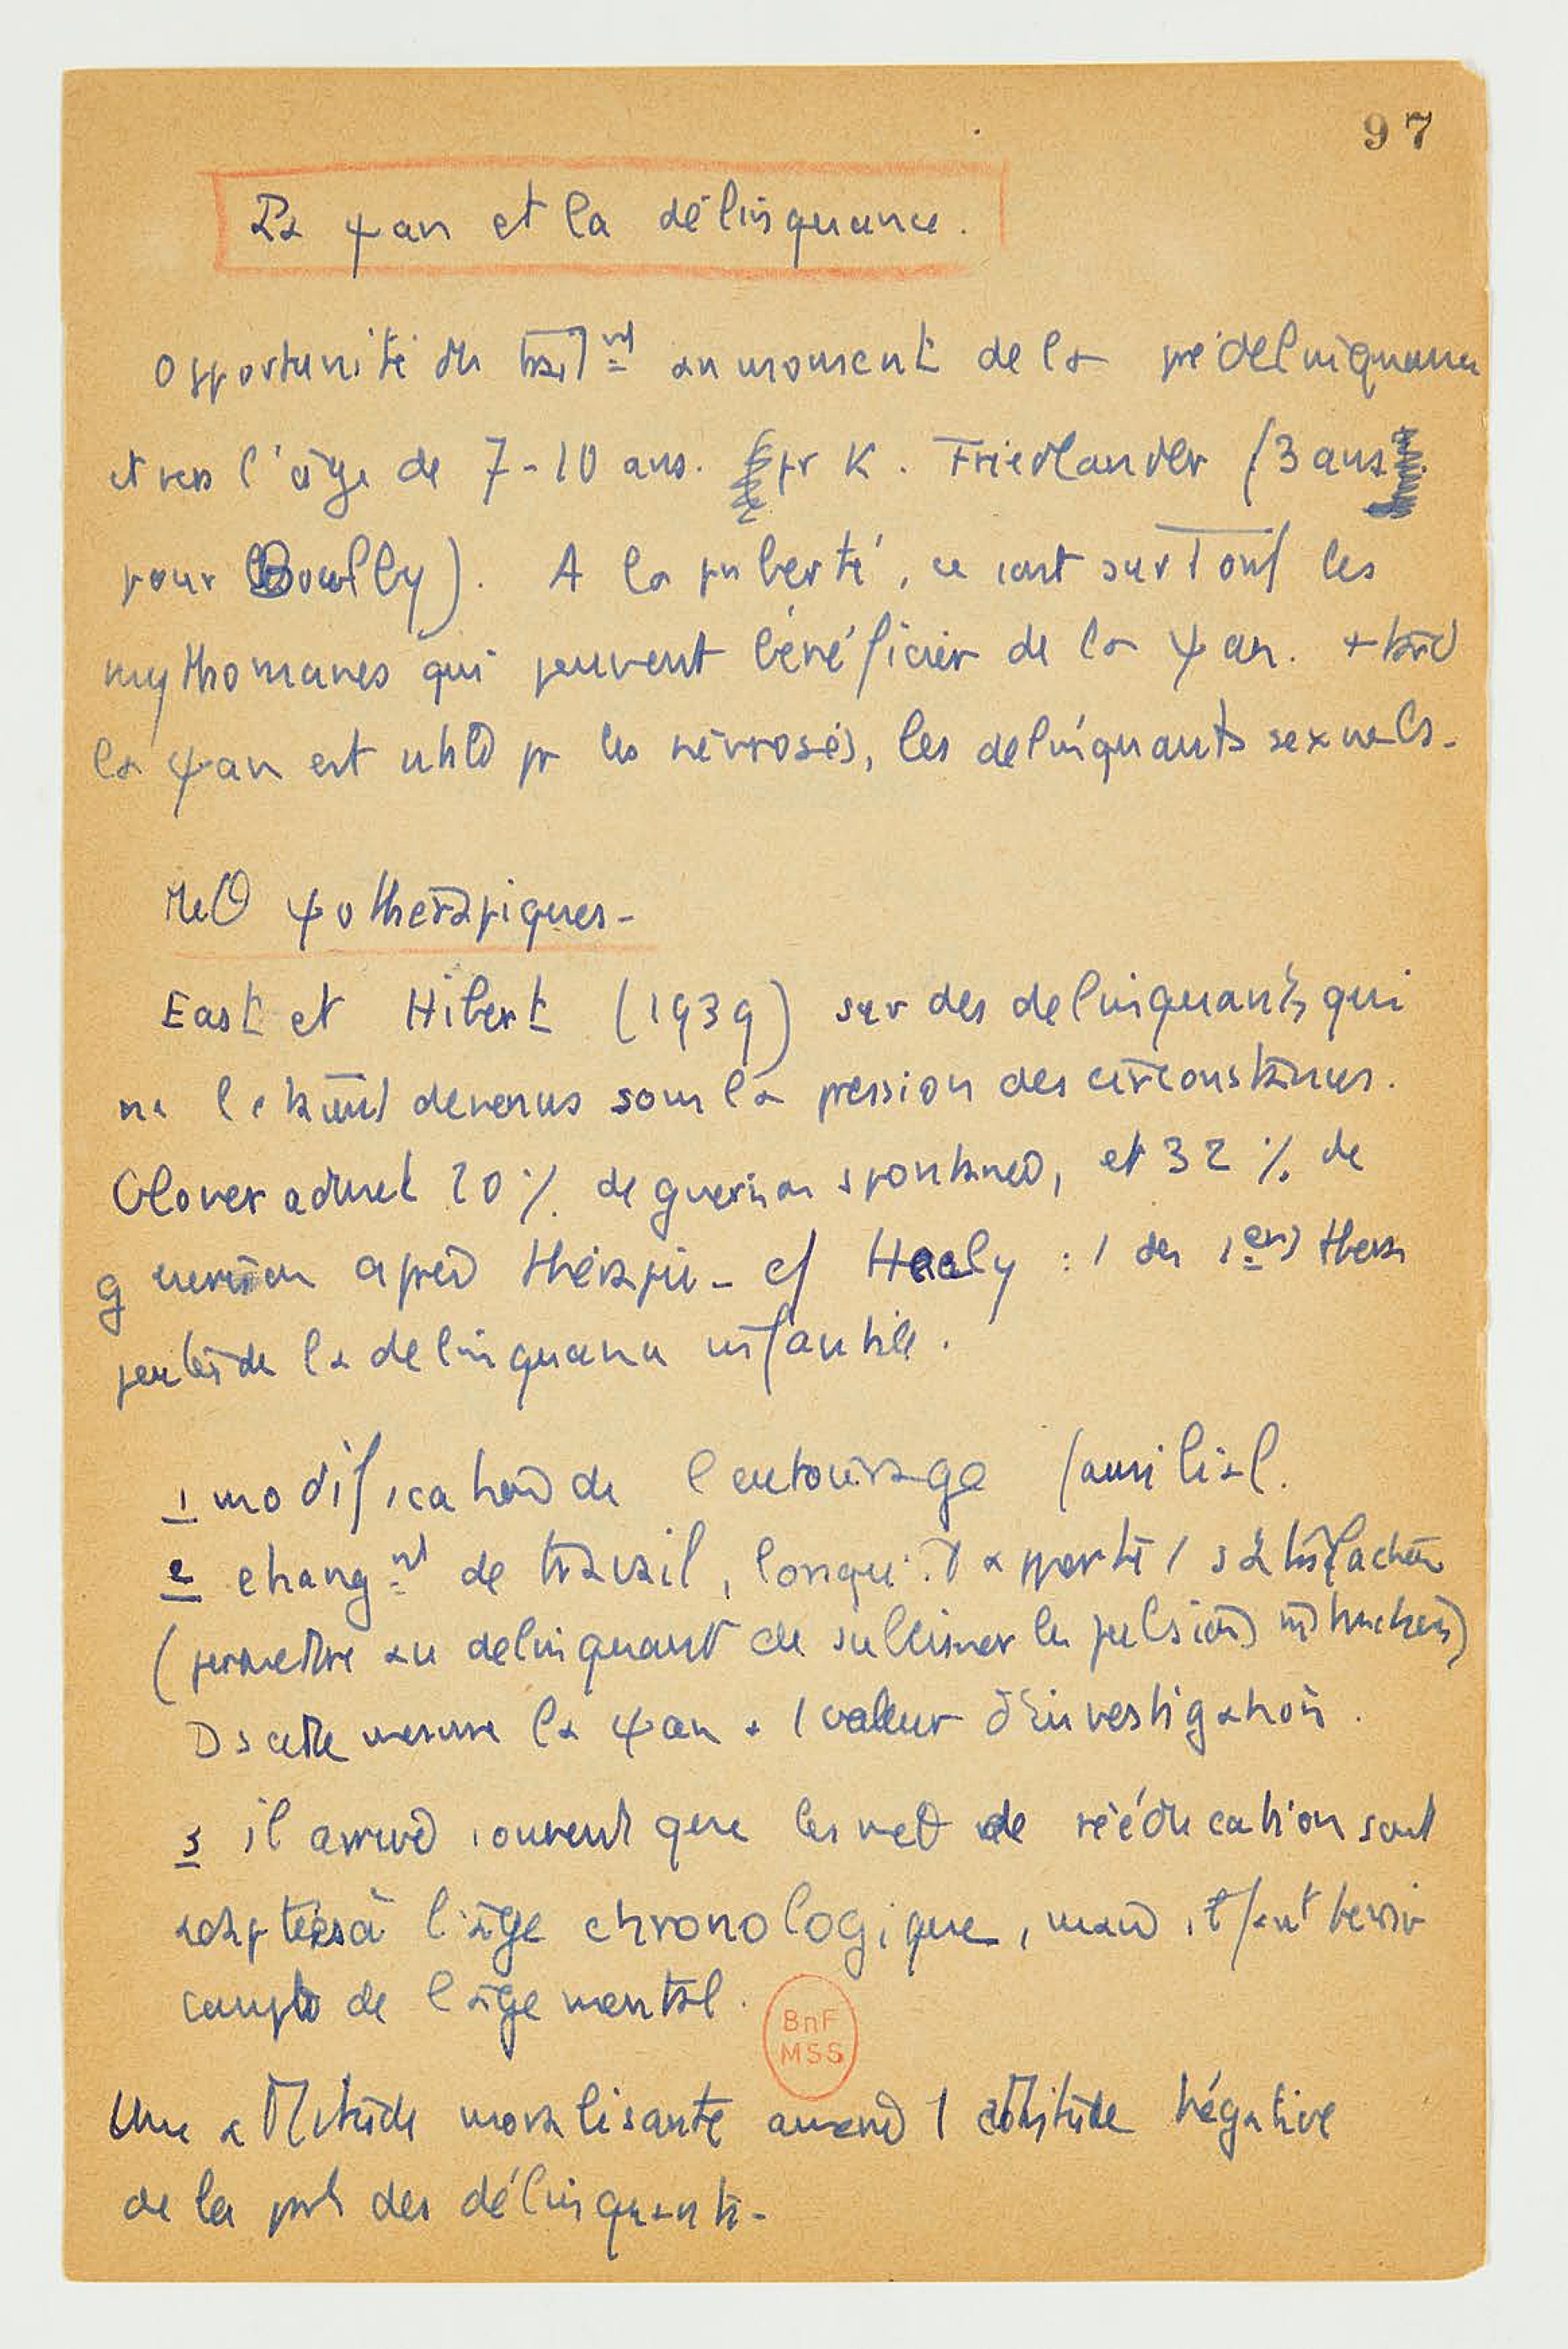 97
La ψan et la délinquance.
Opportunité du trait^nt au moment de la prédélinquance
et vers l'âge de 7-10 ans. pr K. Friedlander (3 ans
pour Bowlby). A la puberté, ce sont surtout les
mythomanes qui peuvent bénéficier de la ψan. + tard
la ψan est utile pr les névrosés, les délinquants sexuels.
ψotherapiques-
East et Hibert (1939) sur des delinquants qui
devenus sous la pression des circonstances.
Glover admet 20% de guerison spontanée, et 32% de
guerison après thérapie - cf Healy : 1 des 1ers thera
peutes de la delinquance infantile.
1 modification de l'entourage familial.
2 chang^nt de travail, lorsqu'il apporte 1 satisfaction
(permettre au delinquant de sublimer les pulsions
Ds cette mesure la ψan a 1 valeur d'investigation.
3 il arrive souvent que les de rééducation sont
adaptées à l'âge chronologique, mais il faut tenir
compte de l'âge mental.
BnF
MSS
Une attitude moralisante amène 1 attitude négative
de la part des délinquants-